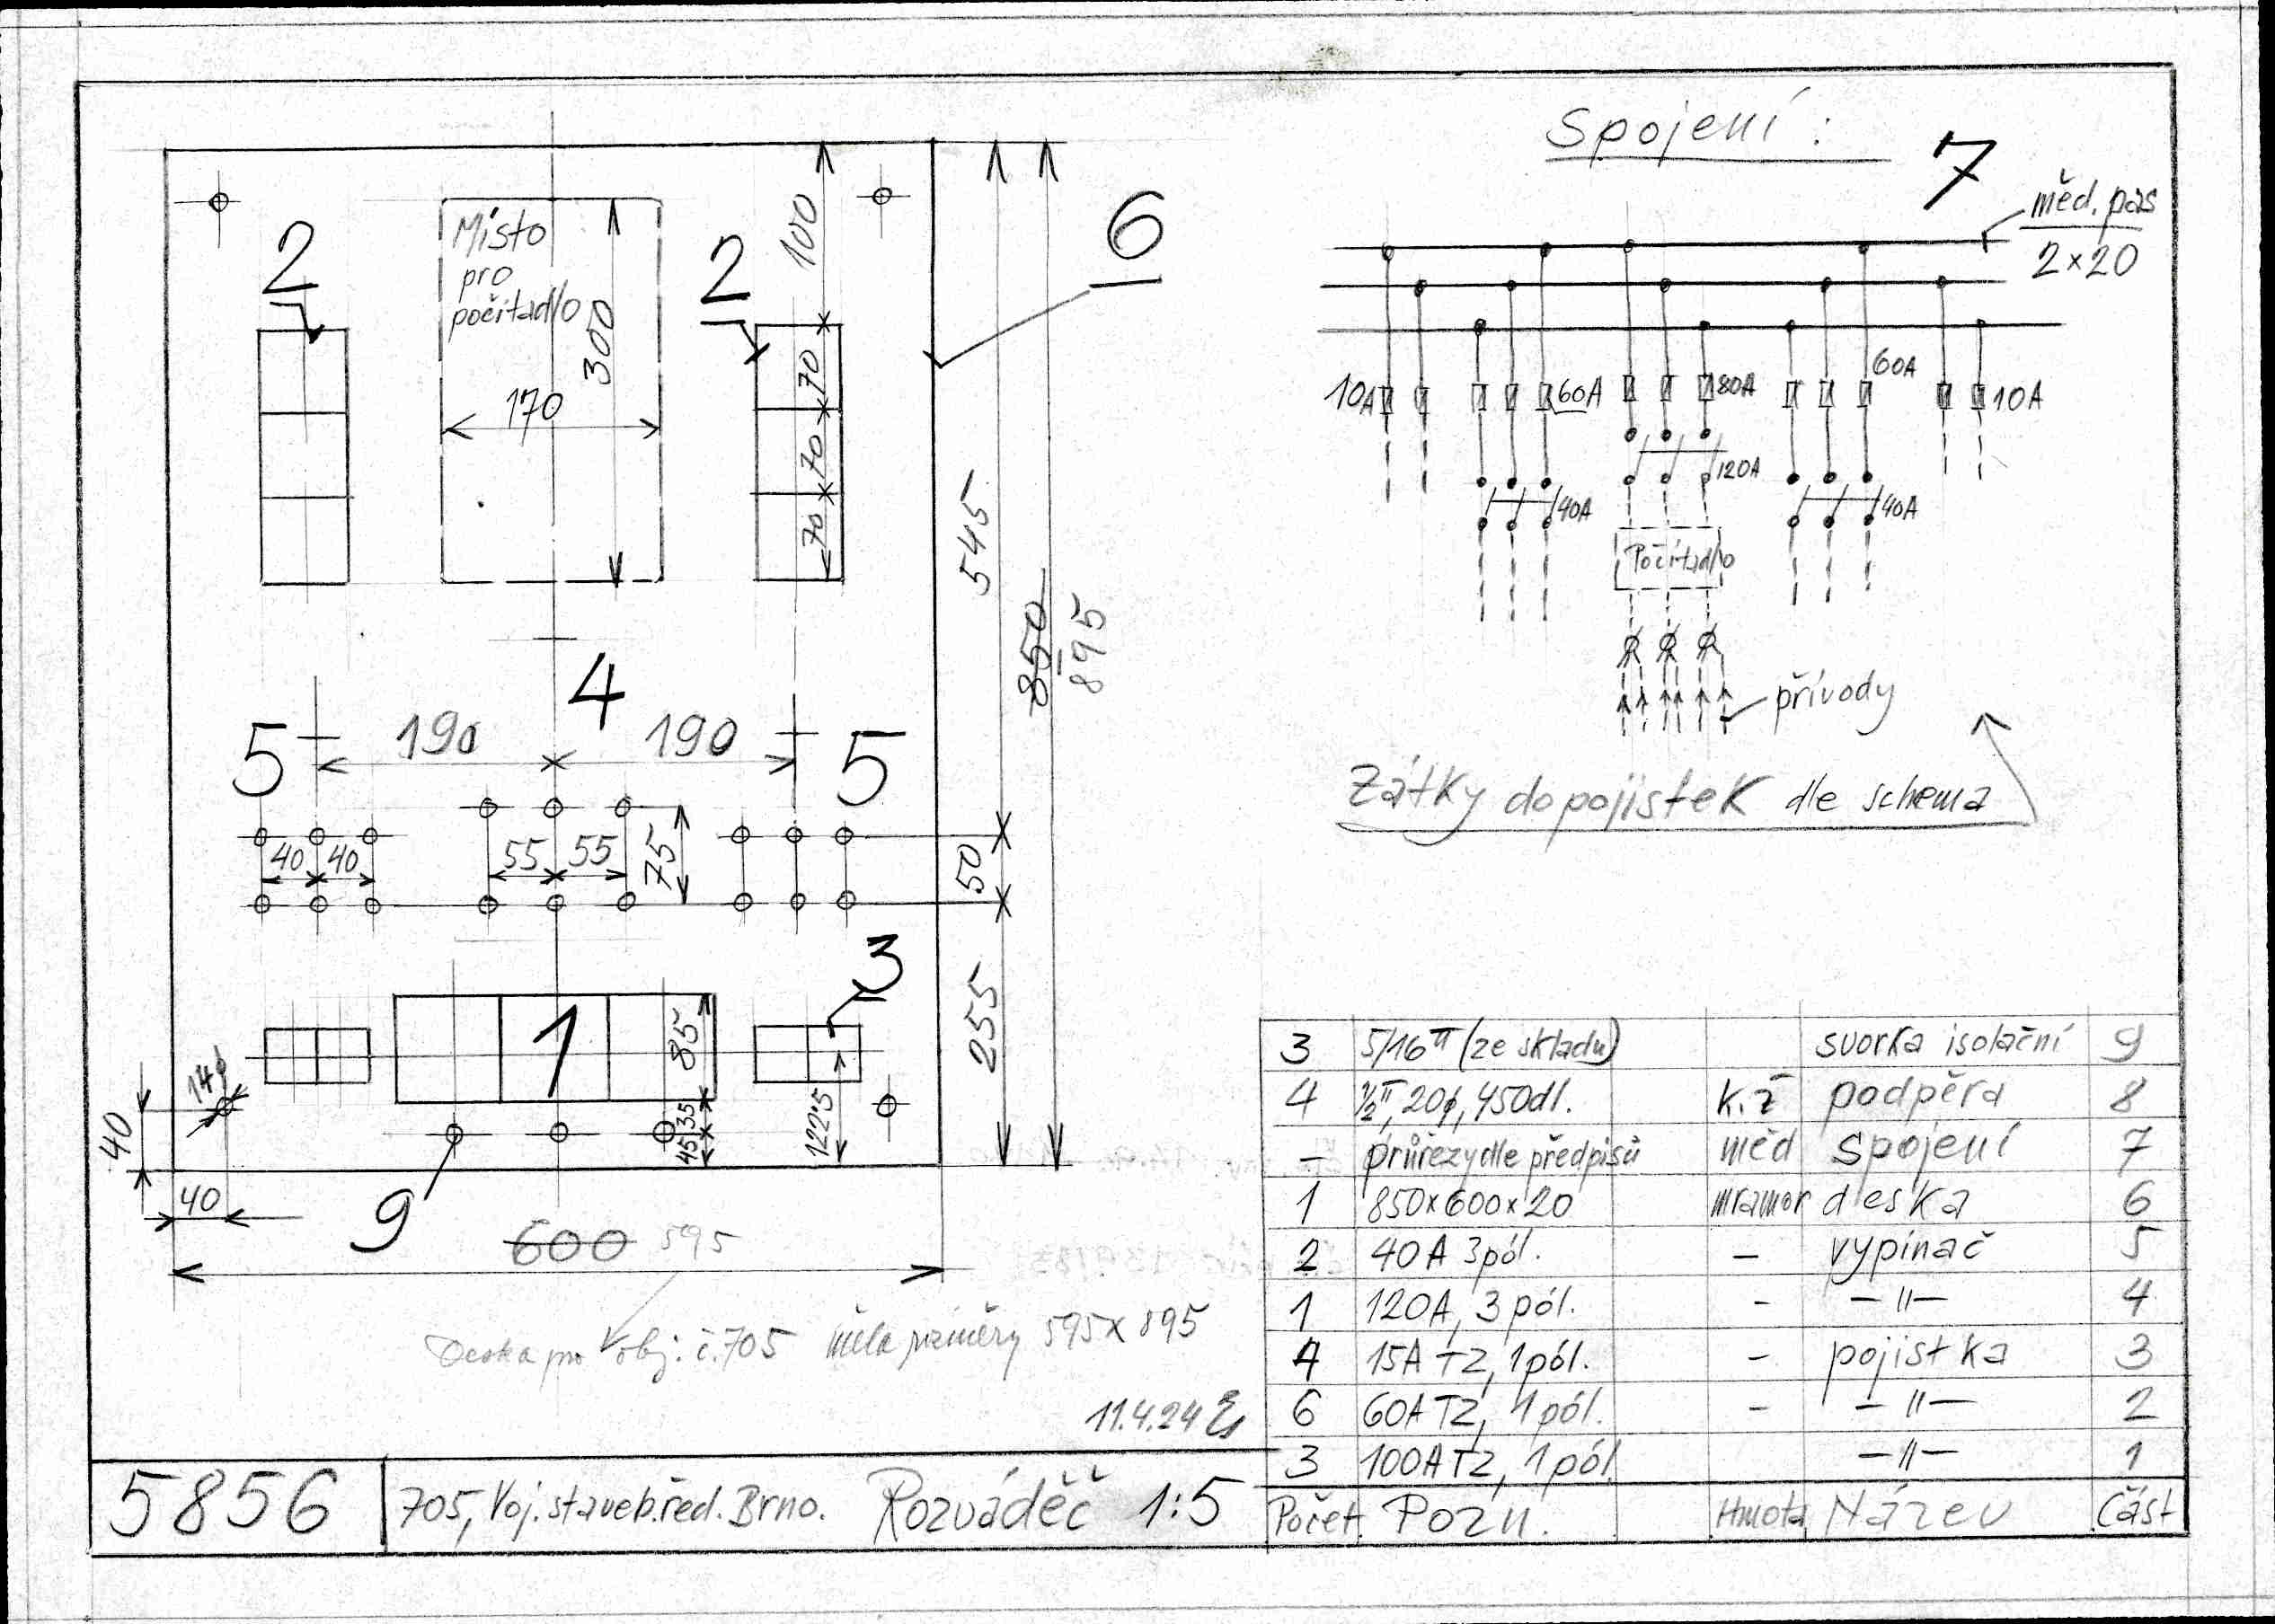 Spojení :
7
měd. pas
2×20
6
2
Místo
pro
počítadlo
2
100
300
170
70
70
70
545
850
895
10A
60A
80A
60A
10A
120A
40A
40A
Počítadlo
přívody
Zátky do pojistek dle schema
4
5
190
190
5
40
40
55
55
75
50
3
1
85
255
14ϕ
35
45
122·5
40
40
9
600 595
Deska pro obj: č.705 měla rozměry 595×895
11.4.24
3 5/16" (ze skladu) svorka isolační 9
4 ½", 20ϕ, 450dl. k.ž podpěra 8
– průřezy dle předpisů měd spojení 7
1 850×600×20 mramor deska 6
2 40A 3pól. – vypínač 5
1 120A, 3pól. – –"– 4
4 15A TZ, 1pól. – pojistka 3
6 60A TZ, 1pól. – –"– 2
3 100A TZ, 1pól. –"– 1
Počet Pozn. Hmota Název Část
5856 705, Voj. staveb. řed. Brno. Rozváděč 1:5